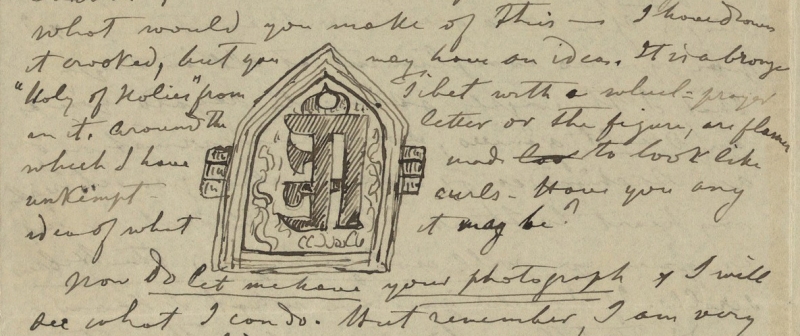 what would you make of this — I have drawn
it crooked, but you may have an idea. It is a bronze
"Holy of Holies" from Tibet with a wheel-prayer
on it. Around the letter or the figure, are flames
which I have made to look like
unkempt curls - Have you any
idea of what it may be?
Now do let me have your photograph & I will
see what I can do. But remember, I am very